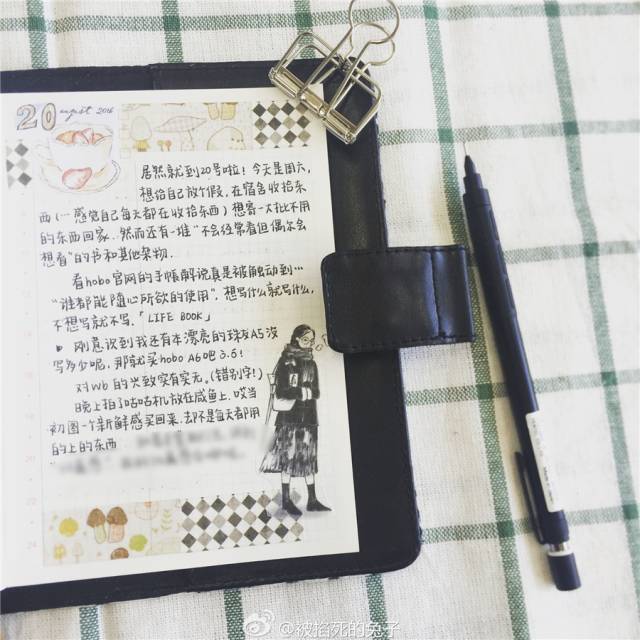 20 august 2016
居然就到20号啦!今天是周六,
想给自己放个假,在宿舍收拾东
西(…感觉自己每天都在收拾东西)想寄一大批不用
的东西回家.然而还有一堆“不会经常看但偶尔会
想看”的书和其他杂物.
看hobo官网的手帐解说真是被触动到…
“谁都能随心所欲的使用”.想写什么就写什么,
不想写就不写.「LIFE BOOK」
刚意识到我还有本漂亮的珠友A5没
写多少呢,那就买hobo A6吧3.6!
对W6的兴致实有实无.(错别字!)
晚上拍了咕咕机放在咸鱼上.哎当
初图一个新鲜感买回来.却不是每天都用
的上的东西
24
@被掐死的兔子